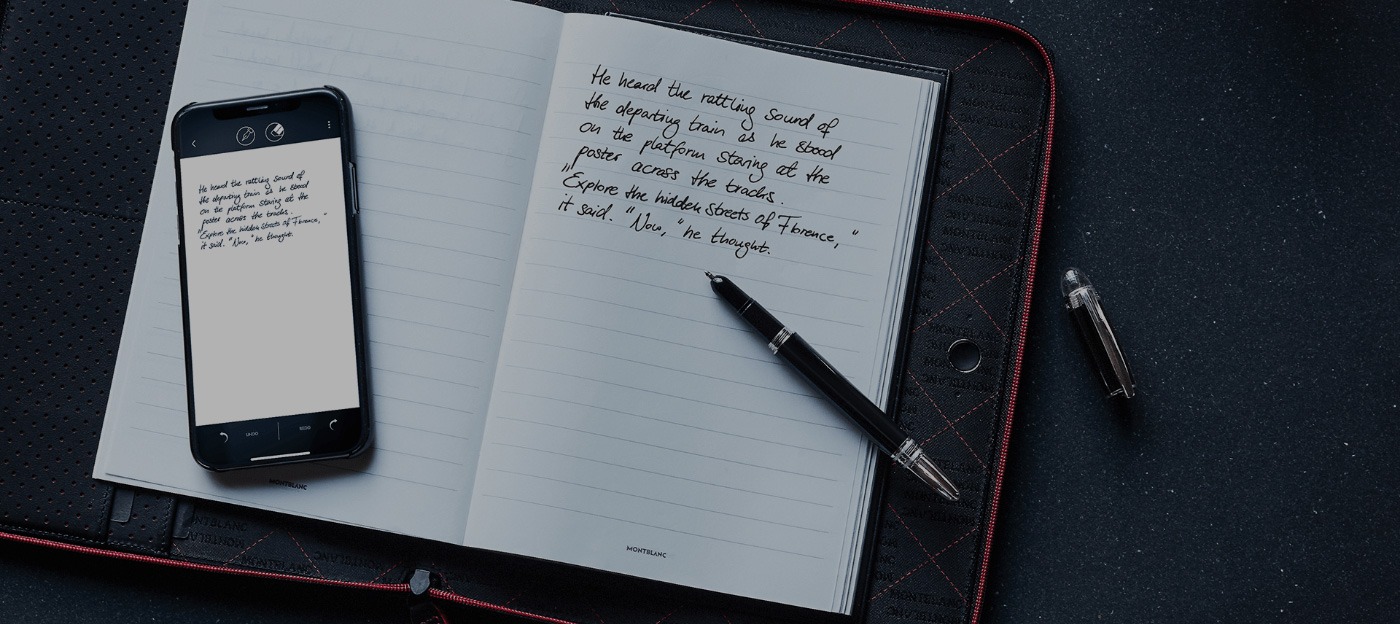 He heard the rattling sound of
the departing train as he stood
on the platform staring at the
poster across the tracks.
"Explore the hidden streets of Florence,"
it said. "Now," he thought.
UNDO
REDO
MONTBLANC
He heard the rattling sound of
the departing train as he stood
on the platform staring at the
poster across the tracks.
„Explore the hidden streets of Florence,"
it said. "Now," he thought.
MONTBLANC
MONTBLANC
MONTBLANC
MONTBLANC
MONTBLANC